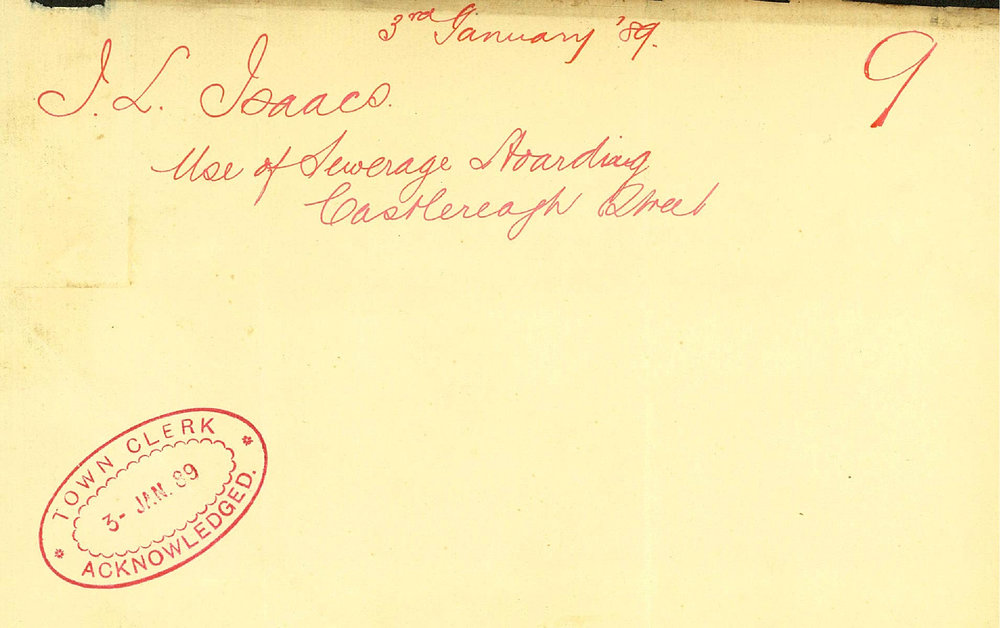 3rd January '89.
9
J. L. Isaacs.
Use of Sewerage Hoarding
Castlereagh Street
TOWN CLERK
3- JAN. 89
ACKNOWLEDGED.